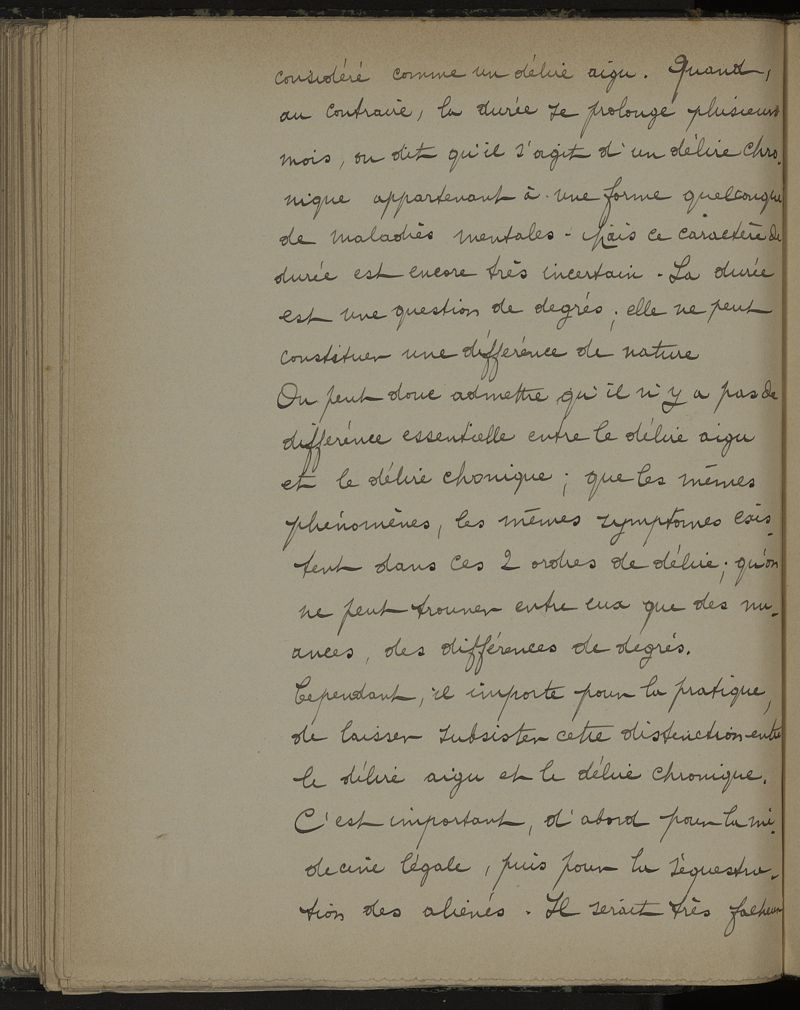 considéré comme un délire aigu. Quand,
au contraire, la durée se prolonge plusieurs
mois, on dit qu'il s'agit d'un délire chro-
nique appartenant à une forme quelconque
de maladies mentales - Mais ce caractère de
durée est encore très incertain - La durée
est une question de degrés ; elle ne peut
constituer une différence de nature
On peut donc admettre qu'il n'y a pas de
différence essentielle entre le délire aigu
et le délire chronique ; que les mêmes
phénomènes, les mêmes symptomes exis-
tent dans ces 2 ordres de délire ; qu'on
ne peut trouver entre eux que des nu-
ances, des différences de degrés.
Cependant, il importe pour la pratique,
de laisser subsister cette distinction entre
le délire aigu et le délire chronique.
C'est important, d'abord pour la mé-
decine légale, puis pour la séquestra-
tion des aliénés. Il serait très facheux